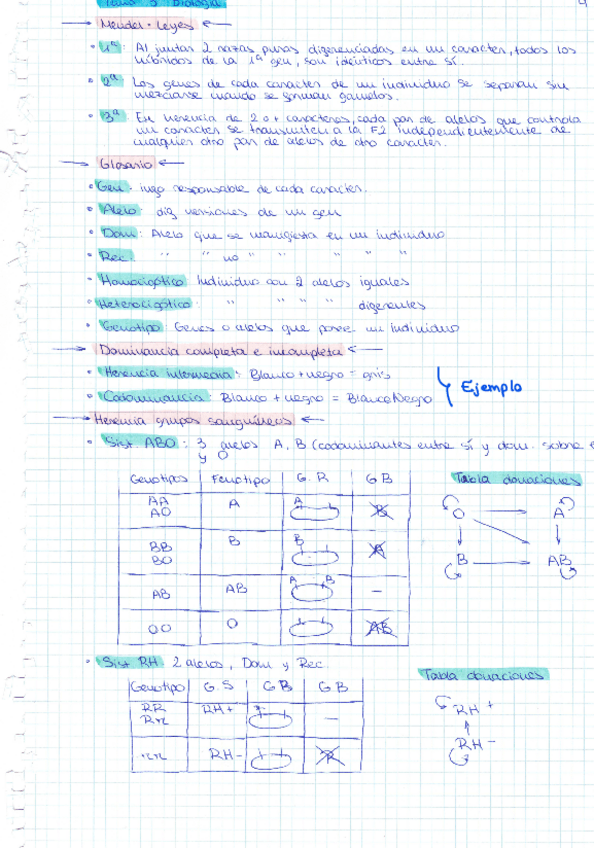 Tema 3 Biología
→ Mendel · Leyes ←
• 1ª: Al juntar 2 razas puras diferenciadas en un caracter, todos los
híbridos de la 1ª gen, son idénticos entre sí.
• 2ª: Los genes de cada caracter de un individuo se separan sin
mezclarse cuando se forman gametos.
• 3ª: En herencia de 2 o + caracteres, cada par de alelos que controla
un caracter se transmiten a la F2 independientemente de
cualquier otro par de alelos de otro caracter.
→ Glosario ←
• Gen: responsable de cada caracter.
• Alelo: dif versiones de un gen
• Dom: Alelo que se manifiesta en un individuo
• Rec: " " no " " " " "
• Homocigótico: Individuo con 2 alelos iguales
• Heterocigótico: " " " " diferentes
• Genotipo: Genes o alelos que posee un individuo
→ Dominancia completa e incompleta ←
• Herencia intermedia: Blanco + negro = gris
• Codominancia: Blanco + negro = BlancoNegro
Ejemplo
→ Herencia grupos sanguíneos ←
• Sist. ABO: 3 alelos A, B (codominantes entre sí y dom. sobre
y O
Genotipos Fenotipo G.R GB
AA
AO A A B
BB
BO B B A
AB AB A B —
OO O AB
Tabla donaciones
O → A
B → AB
• Sist RH: 2 alelos, Dom y Rec.
Genotipo G.S GB GB
RR
Rr RH+ —
rr RH- R
Tabla donaciones
RH +
RH -